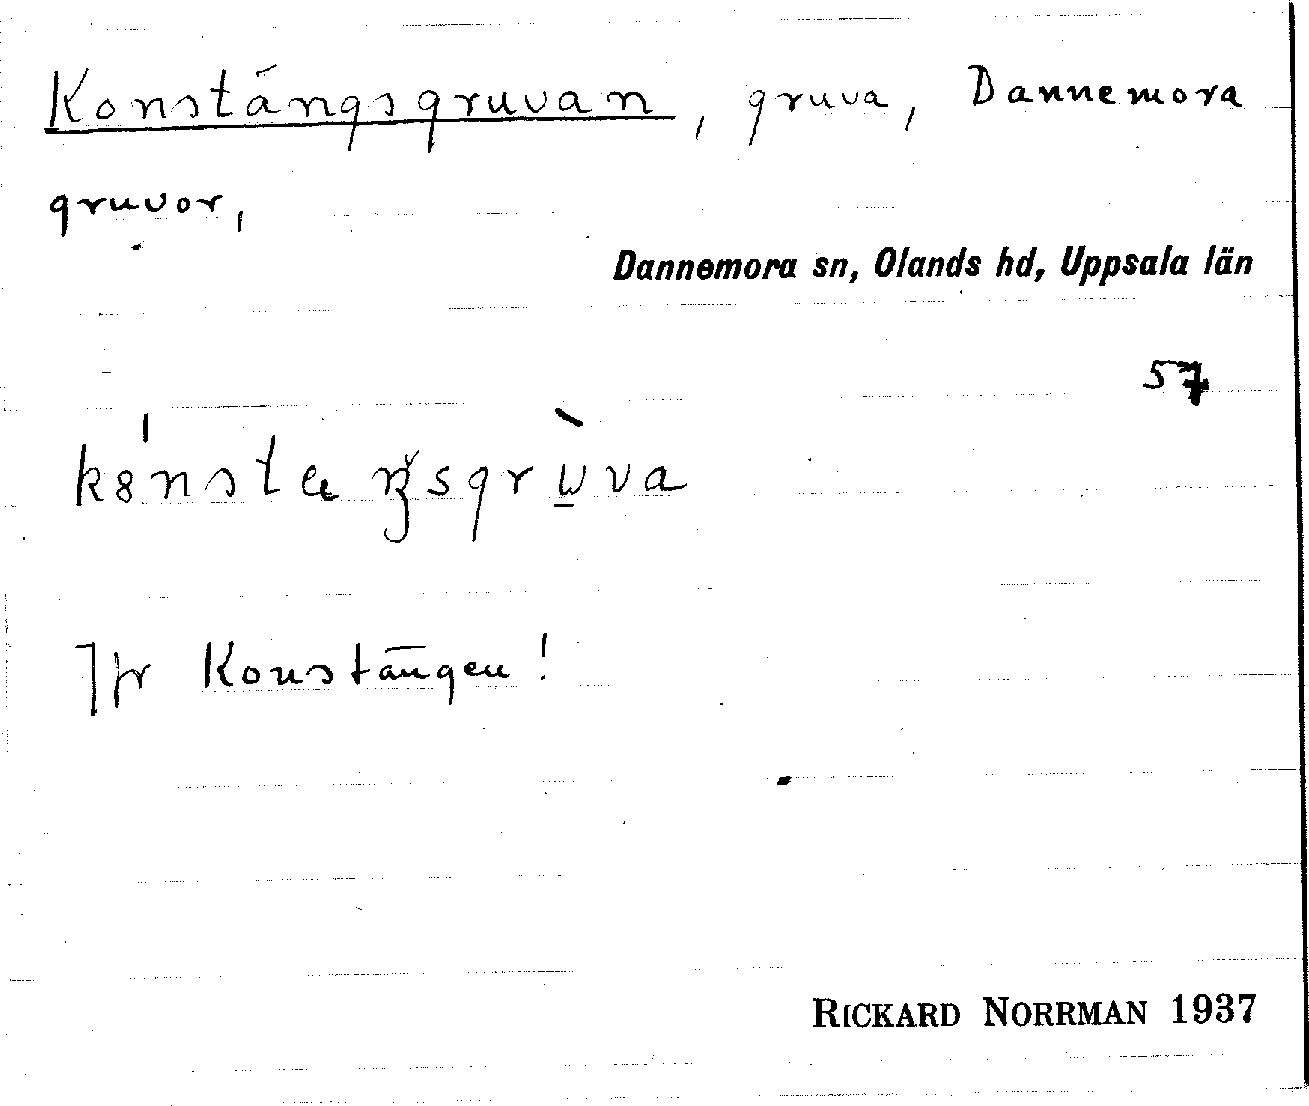 Konstängsgruvan, gruva, Dannemora
gruvor,
Dannemora sn, Olands hd, Uppsala län
57
Jfr Konstängen!
RICKARD NORRMAN 1937